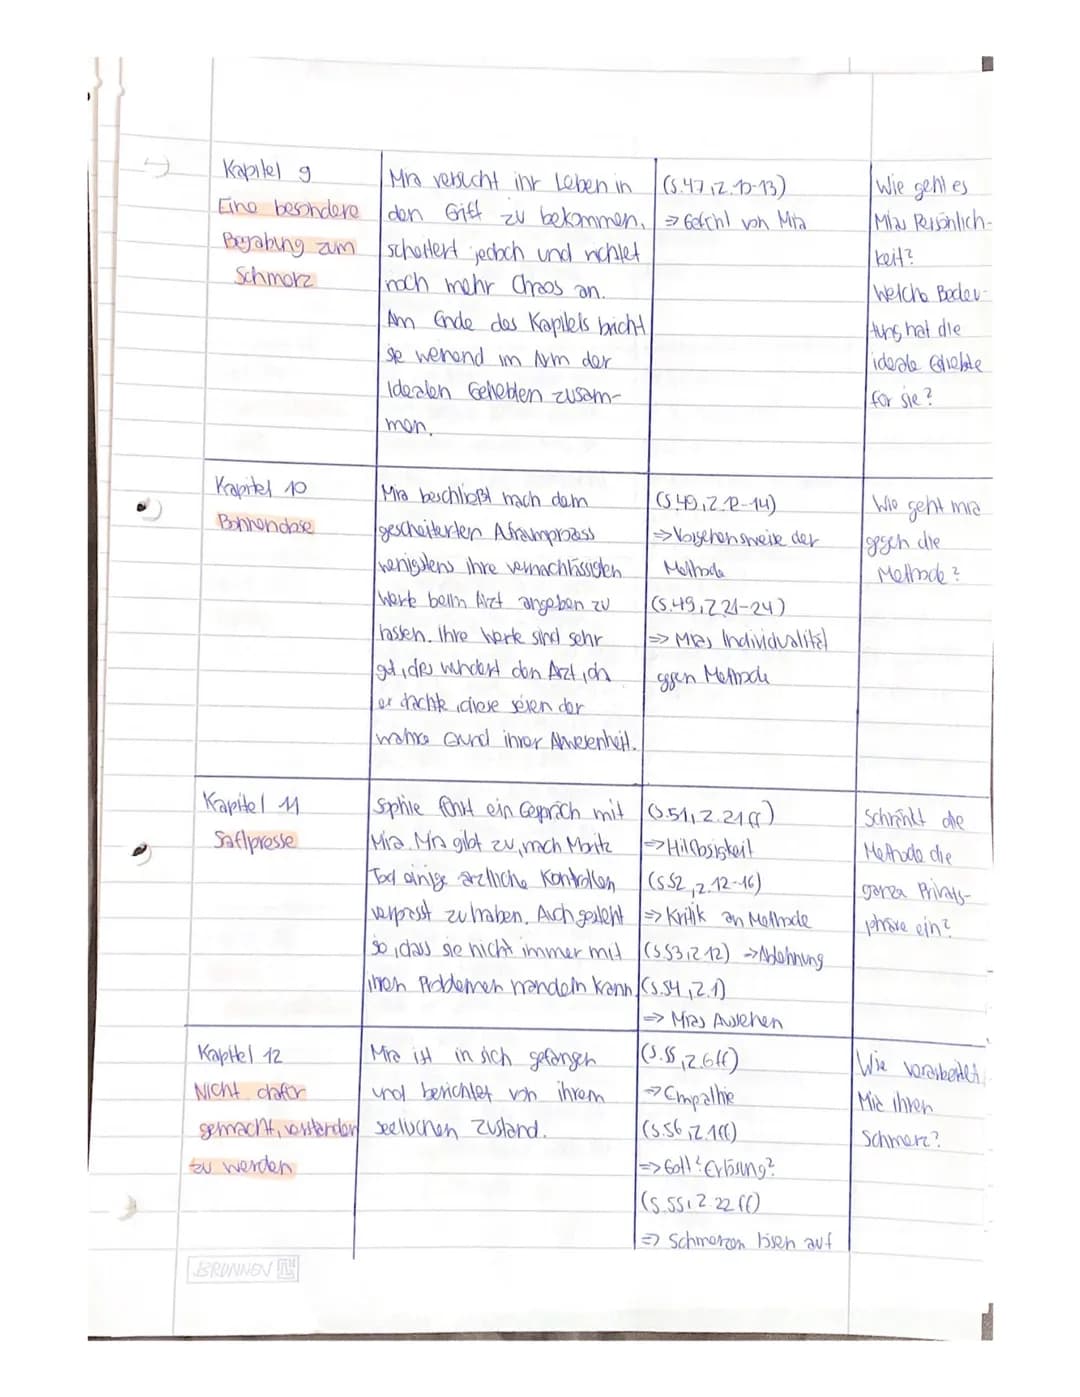 Kapitel 9
Eine besondere
Begabung zum
Schmerz
Mia versucht ihr Leben in
den Griff zu bekommen,
scheitert jedoch und richtet
noch mehr Chaos an.
Am Ende des Kapitels bricht
sie weinend im Arm der
Idealen Geliebten zusam-
men.
(S.47, Z. 10-13)
=> Gefühl von Mia
Wie geht es
Mias Persönlich-
keit?
Welche Bedeu-
tung hat die
ideale Geliebte
für sie?
Kapitel 10
Bohnendose
Mia beschließt nach dem
gescheiterten
wenigstens ihre vernachlässigten
Werte beim Arzt angeben zu
lassen. Ihre Werte sind sehr
gut, dies wundert den Arzt, da
er dachte, diese seien der
wahre Grund ihrer Abwesenheit.
(S.49, Z.12-14)
=> Vorgehensweise der
Methode
(S.49, Z.21-24)
=> Mias Individualität
gegen Methode
Wie geht mia
gegen die
Methode?
Kapitel 11
Saftpresse
Sophie führt ein Gespräch mit
Mia. Mia gibt zu, nach Moritz
Tod einige ärztliche Kontrollen
verpasst zu haben. Auch gesteht
sie, dass sie nicht immer mit
ihren Problemen handeln kann.
(S.51, Z.21ff)
=> Hilflosigkeit
(S.52, Z.12-16)
=> Kritik an Methode
(S.53, Z.12) => Ablehnung
(S.54, Z.1)
=> Mias Aussehen
Schränkt die
Methode die
ganze Privats-
phäre ein?
Kapitel 12
Nicht dafür
gemacht, verstanden
zu werden
Mia ist in sich gefangen
und berichtet von ihrem
seelischen Zustand.
(S.55, Z.6ff)
=> Empathie
(S.56, Z.1ff)
=> Gott? Erlösung?
(S.55, Z.22ff)
=> Schmerzen lösen auf
Wie verarbeitet
Mia ihren
Schmerz?
BRUNNEN